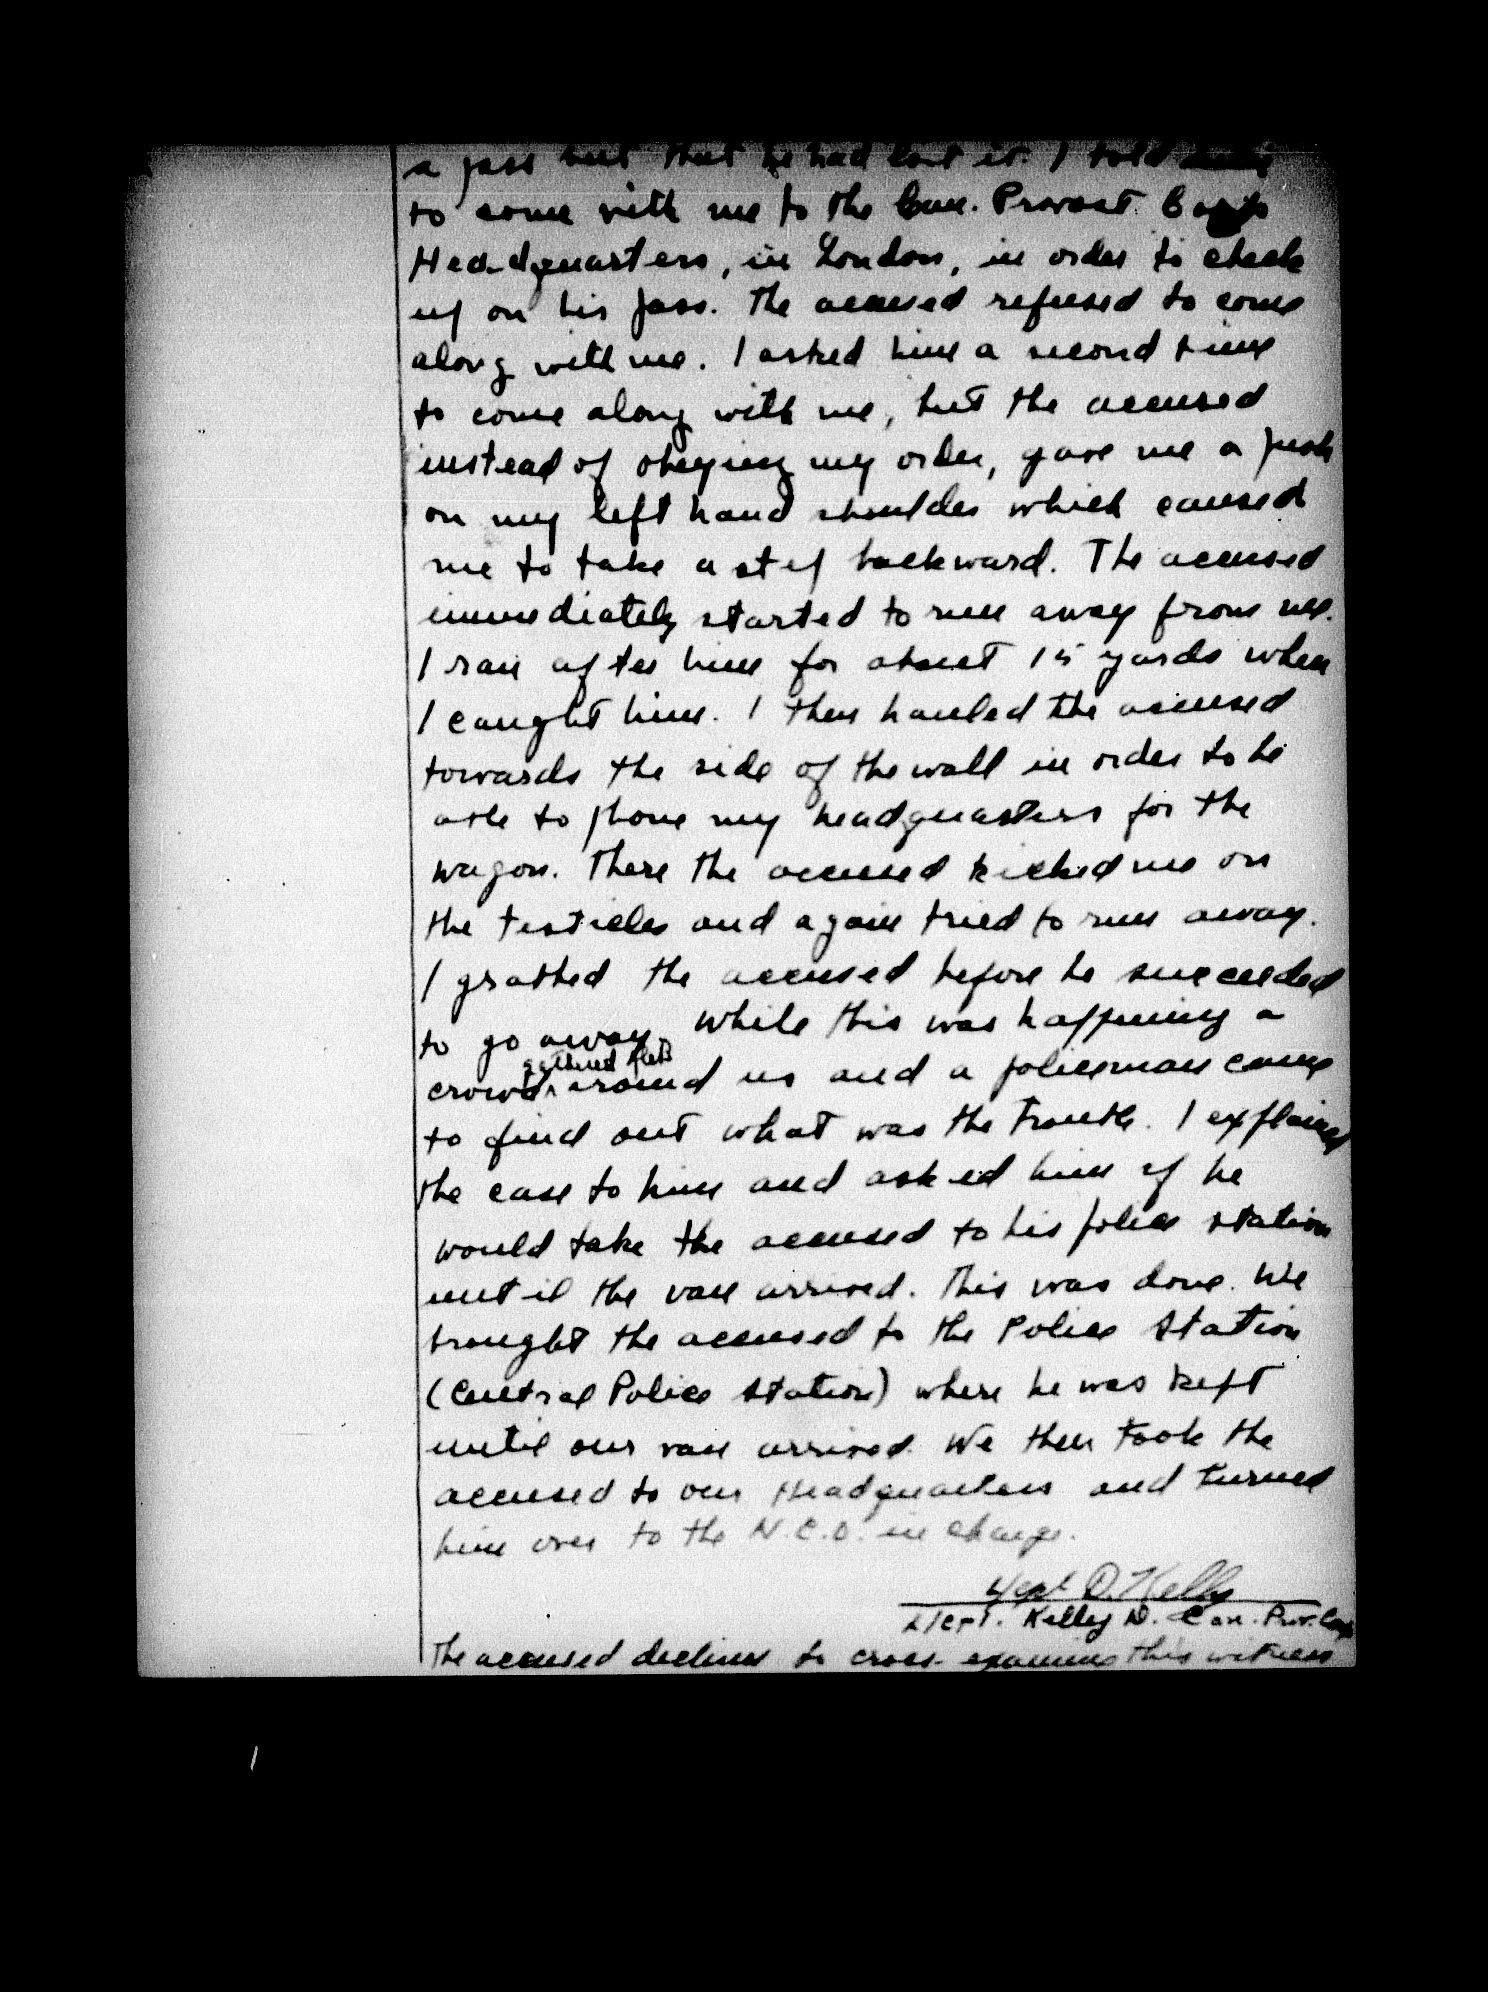 a pass but that he had lost it. I told him
to come with me to the Can. Provost Corps
Headquarters, in London, in order to check
up on his pass. The accused refused to come
along with me. I asked him a second time
to come along with me, but the accused
instead of obeying my order, gave me a push
on my left hand shoulder which caused
me to take a step backward. The accused
immediately started to run away from me.
I ran after him for about 15 yards when
I caught him. I then hauled the accused
towards the side of the wall in order to be
able to phone my headquarters for the
wagon. There the accused kicked me on
the testicles and again tried to run away.
I grabbed the accused before he succeeded
to go away. While this was happening a
gathered
crowd around us and a policeman came
to find out what was the trouble. I explained
the case to him and asked him if he
would take the accused to his police station
until the van arrived. This was done. We
brought the accused to the Police Station
(Central Police Station) where he was kept
until our van arrived. We then took the
accused to our Headquarters and turned
him over to the N.C.O. in charge.
D. Kelly
L/Cpl. Kelly D. Can. Prov. Corps
The accused declines to cross-examine this witness